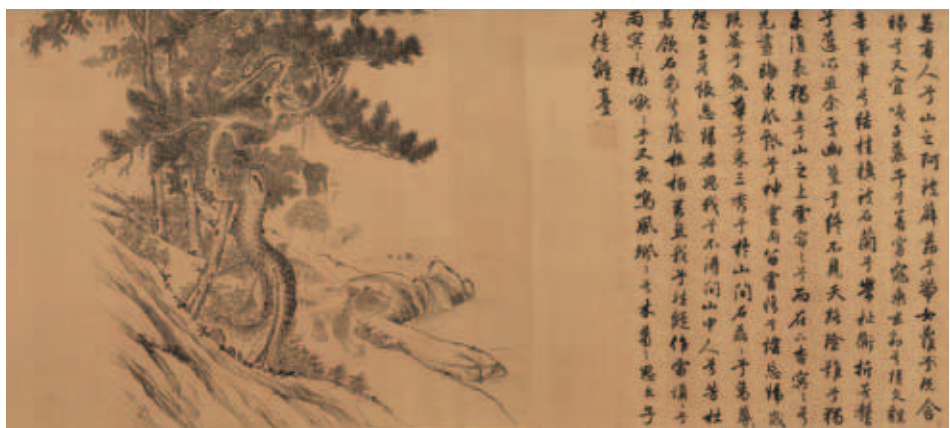 若有人兮山之阿被薜荔兮帶女蘿兮既含
睇兮又宜咲子慕予兮善窈窕乘赤豹兮從文貍
辛夷車兮結桂旗被石蘭兮帶杜衡折芳馨
兮遺所思余處幽篁兮終不見天路險難兮獨
後來表獨立兮山之上雲容〻兮而在下杳冥〻兮
羌晝晦東風飄兮神靈雨留靈脩兮憺忘歸歲
既晏兮孰華予采三秀兮於山間石磊〻兮葛蔓〻
怨公子兮悵忘歸君思我兮不得閒山中人兮芳杜
若飲石泉兮蔭松柏君思我兮然疑作雷填〻兮
雨冥〻猨啾〻兮又夜鳴風颯〻兮木蕭〻思公子
兮徒離憂